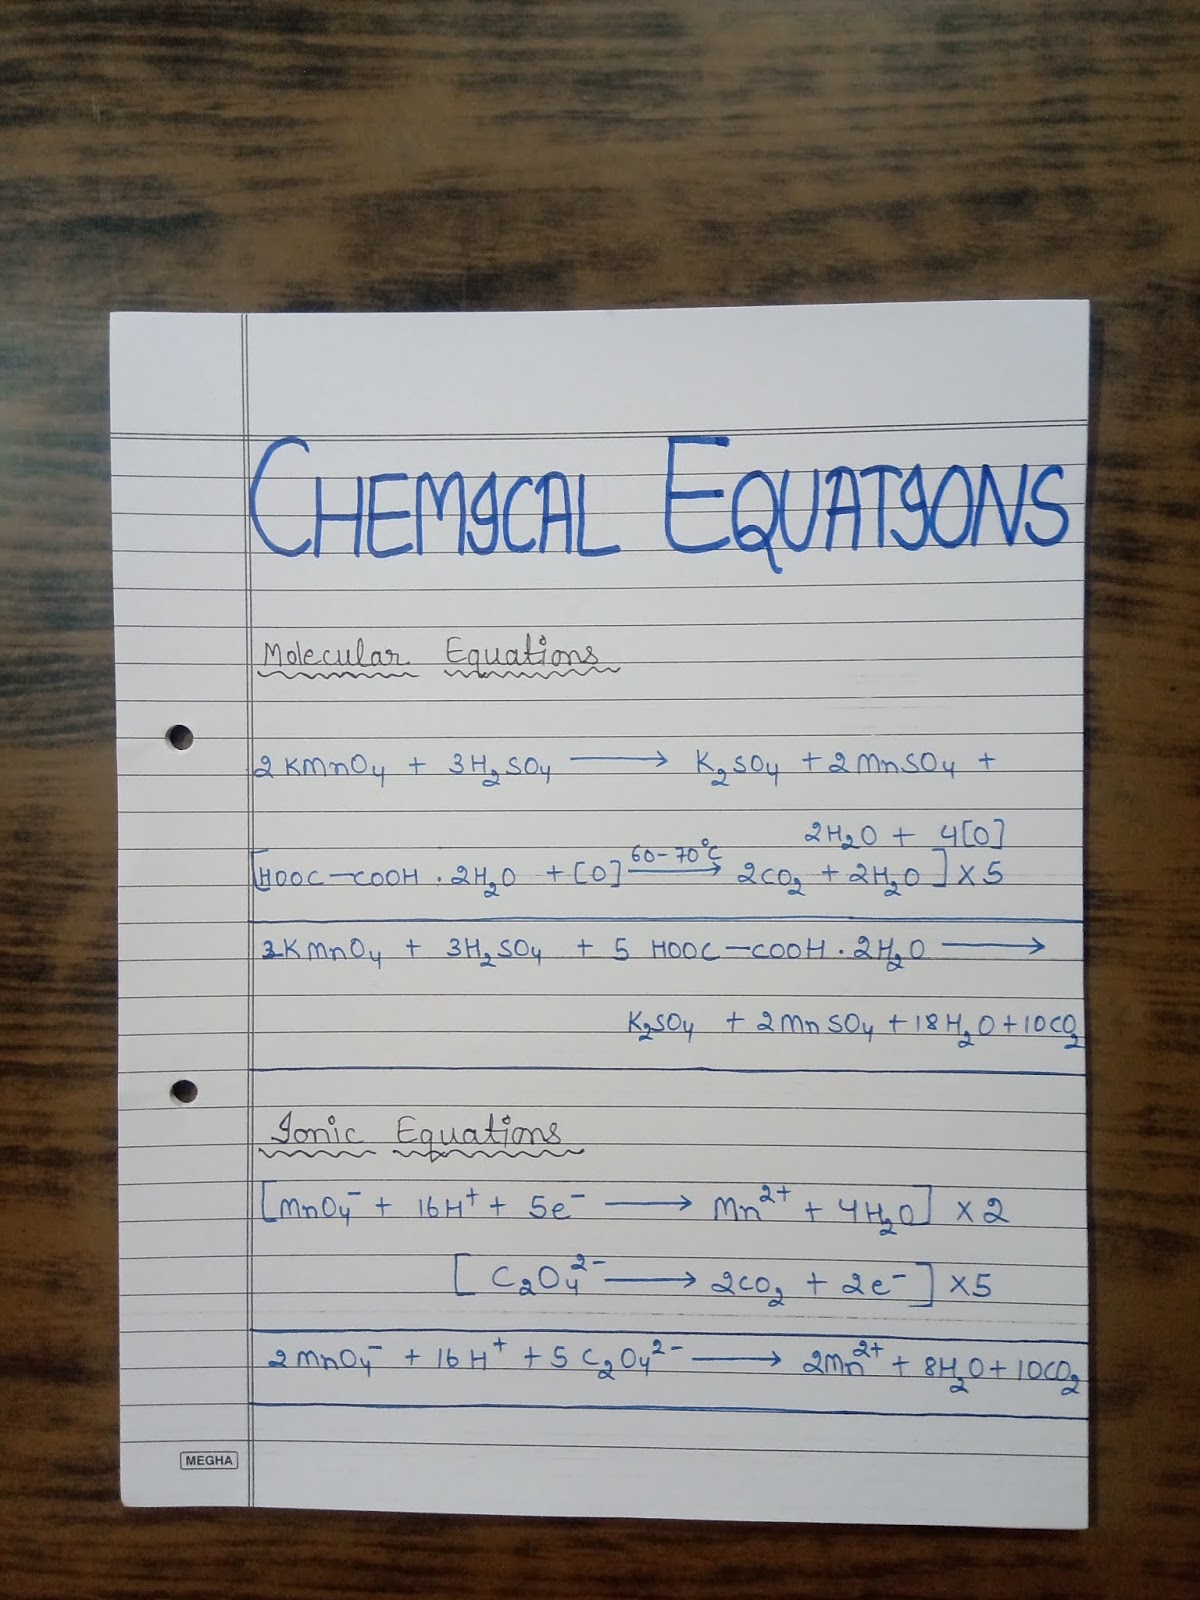 CHEMICAL EQUATIONS
Molecular Equations
2KMnO₄ + 3H₂SO₄ ⟶ K₂SO₄ + 2MnSO₄ +
2H₂O + 4[O]
[HOOC–COOH . 2H₂O + [O] 60–70°C ⟶ 2CO₂ + 2H₂O] × 5
2KMnO₄ + 3H₂SO₄ + 5 HOOC–COOH . 2H₂O ⟶
K₂SO₄ + 2MnSO₄ + 18H₂O + 10CO₂
Ionic Equations
[MnO₄⁻ + 16H⁺ + 5e⁻ ⟶ Mn²⁺ + 4H₂O] × 2
[C₂O₄²⁻ ⟶ 2CO₂ + 2e⁻] × 5
2MnO₄⁻ + 16H⁺ + 5C₂O₄²⁻ ⟶ 2Mn²⁺ + 8H₂O + 10CO₂
MEGHA